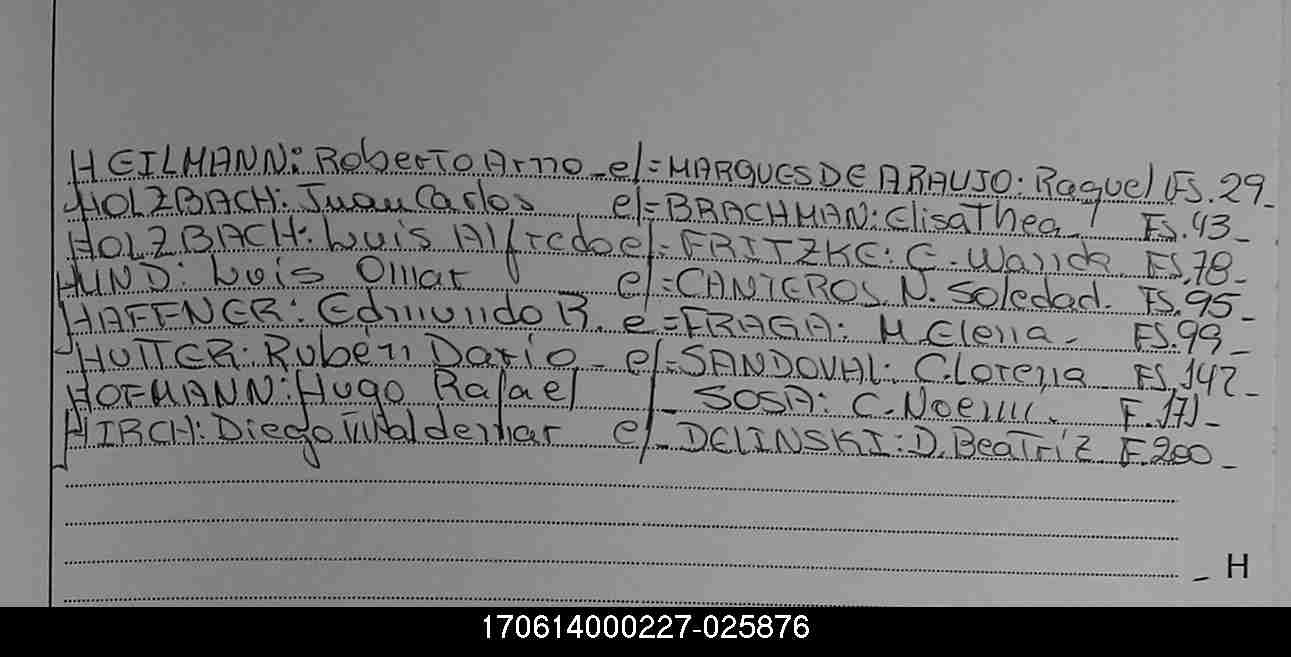 HEILMANN: Roberto Arno - e/= MARQUES DE ARAUJO: Raquel FS. 29-
HOLZBACH: Juan Carlos e/= BRACHMAN: Elisa Thea FS. 43-
HOLZBACH: Luis Alfredo e/= FRITZKE: G. Wanda FS. 78-
HUND: Luis Omar e/= CANTEROS N. Soledad. FS. 95-
HAFFNER: Edmundo R. e= FRAGA: M. Elena - FS. 99-
HUTTER: Rubén Dario - e/= SANDOVAL: C. Lorena FS. 142-
HOFMANN: Hugo Rafael /- SOSA: C. Noemi. F. 171-
HIRCH: Diego Waldemar e/- DELINSKI: D. Beatriz F. 200-
- H
170614000227-025876